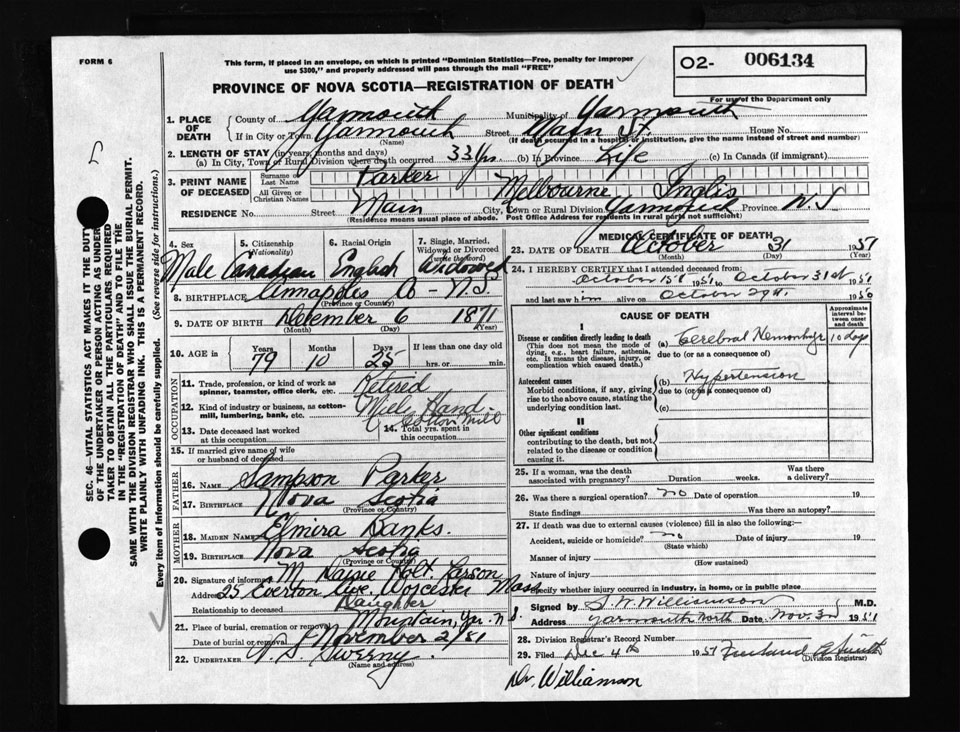 FORM 6
This form, if placed in an envelope, on which is printed "Dominion Statistics—Free, penalty for improper
use $300," and properly addressed will pass through the mail "FREE"
O2- 006134
For use of the Department only
PROVINCE OF NOVA SCOTIA—REGISTRATION OF DEATH
1. PLACE OF DEATH
County of Yarmouth Municipality of Yarmouth
If in City or Town Yarmouth Street Main St. House No.
(Name) (If death occurred in a hospital or institution, give the name instead of street and number)
2. LENGTH OF STAY (in years, months and days)
(a) In City, Town or Rural Division where death occurred 33 Yrs (b) In Province Life (c) In Canada (if immigrant)
3. PRINT NAME OF DECEASED
Surname or Last Name Parker
All Given or Christian Names Melbourne Inglis
RESIDENCE No. Street Main City, Town or Rural Division Yarmouth Province N.S
(Residence means usual place of abode. Post Office Address for residents in rural parts not sufficient)
4. Sex 5. Citizenship (Nationality) 6. Racial Origin 7. Single, Married, Widowed or Divorced (write the word)
Male Canadian English Widowed
8. BIRTHPLACE Annapolis Co - N.S.
(Province or Country)
9. DATE OF BIRTH December 6 1871
(Month) (Day) (Year)
10. AGE in Years Months Days If less than one day old
79 10 25 hrs. or min.
OCCUPATION
11. Trade, profession, or kind of work as spinner, teamster, office clerk, etc. Retired
12. Kind of industry or business, as cotton-mill, lumbering, bank, etc. Hand Cotton Mill
13. Date deceased last worked at this occupation
14. Total yrs. spent in this occupation
15. If married give name of wife or husband of deceased
FATHER
16. NAME Sampson Parker
17. BIRTHPLACE Nova Scotia
(Province or Country)
MOTHER
18. MAIDEN NAME Elmira Banks.
19. BIRTHPLACE Nova Scotia
(Province or Country)
20. Signature of informant M. Larson
Address 25 Everton Ave. Mass
Relationship to deceased Daughter
21. Place of burial, cremation or removal Mountain, Yar. N.S.
Date of burial or removal November 2/51
22. UNDERTAKER Sweeny.
(Name and address)
MEDICAL CERTIFICATE OF DEATH
23. DATE OF DEATH October 31 1951
(Month) (Day)
24. I HEREBY CERTIFY that I attended deceased from
October 15th 1951 to October 31st 1951
and last saw him alive on October 29th 1950
CAUSE OF DEATH
Approximate interval between onset and death
I
Disease or condition directly leading to death
(This does not mean the mode of dying, e.g., heart failure, asthenia, etc. It means the disease, injury, or complication which caused death.)
(a) Cerebral Hemorrhage 10 days
due to (or as a consequence of)
Antecedent causes
Morbid conditions, if any, giving rise to the above cause, stating the underlying condition last.
(b) Hypertension
due to (or as a consequence of)
(c)
II
Other significant conditions
contributing to the death, but not related to the disease or condition causing it.
25. If a woman, was the death associated with pregnancy? Duration weeks. Was there a delivery?
26. Was there a surgical operation? no Date of operation 19
State findings Was there an autopsy?
27. If death was due to external causes (violence) fill in also the following:—
Accident, suicide or homicide? no Date of injury 19
(State which)
Manner of injury
(How sustained)
Nature of injury
Specify whether injury occurred in industry, in home, or in public place
Signed by S. W. Williamson M.D.
Address Yarmouth North Date Nov. 3rd 1951
28. Division Registrar's Record Number
29. Filed Dec 4th 1951
(Division Registrar)
Dr. Williamson
SEC. 46—VITAL STATISTICS ACT MAKES IT THE DUTY
OF THE UNDERTAKER OR PERSON ACTING AS UNDER-
TAKER TO OBTAIN ALL THE PARTICULARS REQUIRED
IN THE "REGISTRATION OF DEATH" AND TO FILE THE
SAME WITH THE DIVISION REGISTRAR WHO SHALL ISSUE THE BURIAL PERMIT.
WRITE PLAINLY WITH UNFADING INK. THIS IS A PERMANENT RECORD.
Every item of information should be carefully supplied. (See reverse side for instructions.)